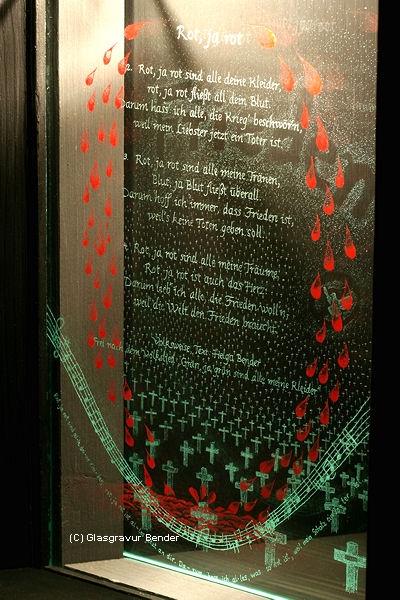 Rot, ja rot
2. Rot, ja rot sind alle deine Kleider,
rot, ja rot fließt all dein Blut.
Darum hass' ich alle, die Krieg beschwören,
weil mein Liebster jetzt ein Toter ist.
3. Rot, ja rot sind alle meine Tränen,
Blut, ja Blut fließt überall.
Darum hoff ich immer, dass Frieden ist,
weil's keine Toten geben soll.
4. Rot, ja rot sind alle meine Träume,
Rot, ja rot ist auch das Herz.
Darum lieb ich alle, die Frieden woll'n,
weil die Welt den Frieden braucht.
Volksweise, Text: Helga Bender
Frei nach dem Volkslied: „Grün, ja grün sind alle meine Kleider"
(C) Glasgravur Bender